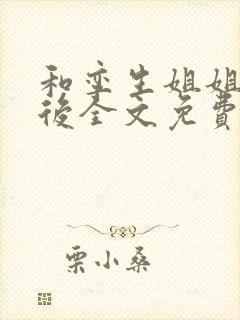 和孪生姐姐
後全文免費
栗小桑